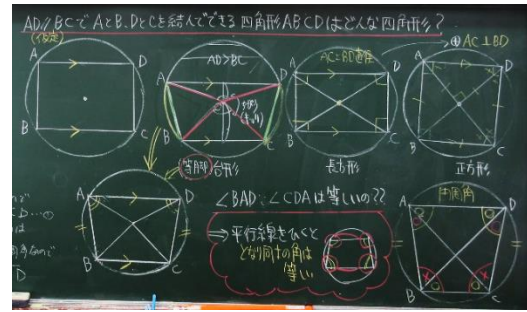 AD//BCでAとB.DとCを結んでできる四角形ABCDはどんな四角形?
(仮定)
A D
B C
AD>BC
A D
B C
等脚台形
AC=BD直径
A D
B C
長方形
⊕ AC⊥BD
A D
B C
正方形
A D
B C
∠BADと∠CDAは等しいの??
⇒平行線をひくと
となり同士の角は
等しい
円周角
A D
B C
D